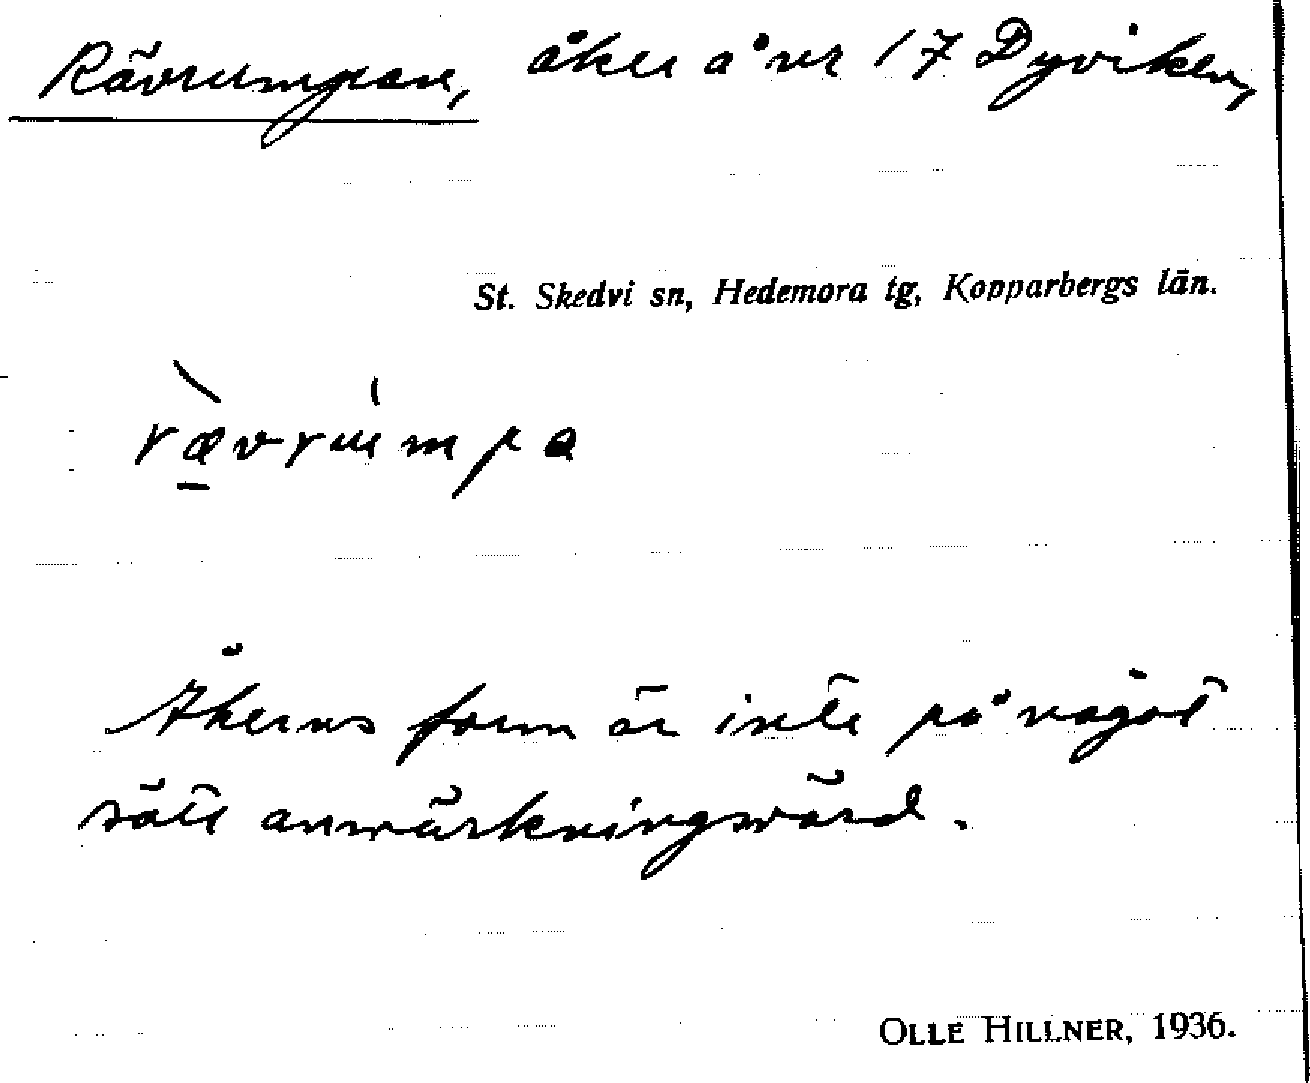 Rävrumpan, åker å nr 17 Dyviken,
St. Skedvi sn, Hedemora tg, Kopparbergs län.
rævrumpa
Åkerns form är inte på något
sätt anmärkningsvärd.
OLLE HILLNER, 1936.